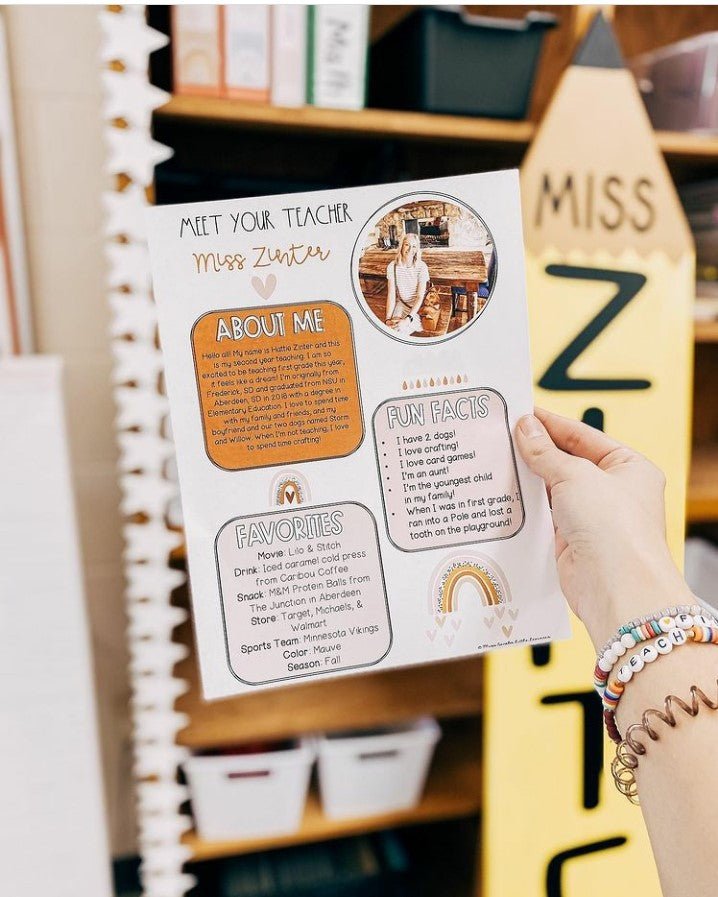 Math
MISS
Z
MEET YOUR TEACHER
Miss Zinter
ABOUT ME
Hello all! My name is Hattie Zinter and this
is my second year teaching. I am so
excited to be teaching first grade this year,
it feels like a dream! I'm originally from
Frederick, SD and graduated from NSU in
Aberdeen, SD in 2018 with a degree in
Elementary Education. I love to spend time
with my family and friends, and my
boyfriend and our two dogs named Storm
and Willow. When I'm not teaching, I love
to spend time crafting!
FUN FACTS
• I have 2 dogs!
• I love crafting!
• I love card games!
• I'm an aunt!
• I'm the youngest child
in my family!
• When I was in first grade, I
ran into a Pole and lost a
tooth on the playground!
FAVORITES
Movie: Lilo & Stitch
Drink: Iced caramel cold press
from Caribou Coffee
Snack: M&M Protein Balls from
The Junction in Aberdeen
Store: Target, Michaels, &
Walmart
Sports Team: Minnesota Vikings
Color: Mauve
Season: Fall
TEACH